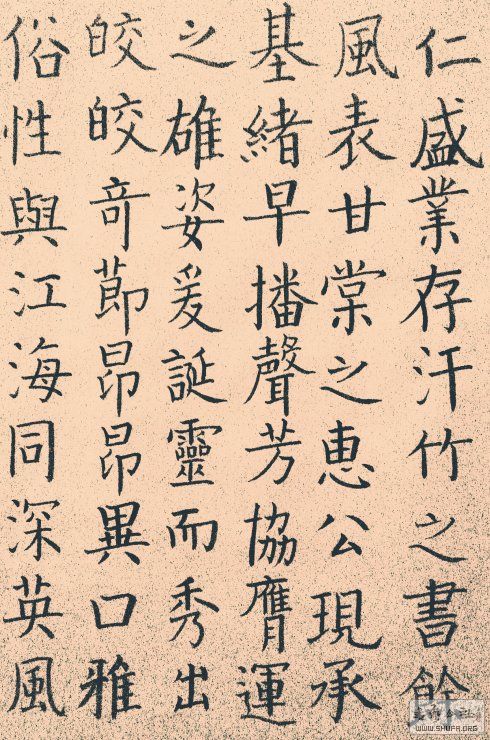 仁盛業存汗竹之書餘
風表甘棠之恵公現承
基緒早播聲芳協膺運
之雄姿爰誕靈而秀出
皎皎竒莭昂昂異口雅
俗性與江海同深英風
WWW.SHUFA.ORG